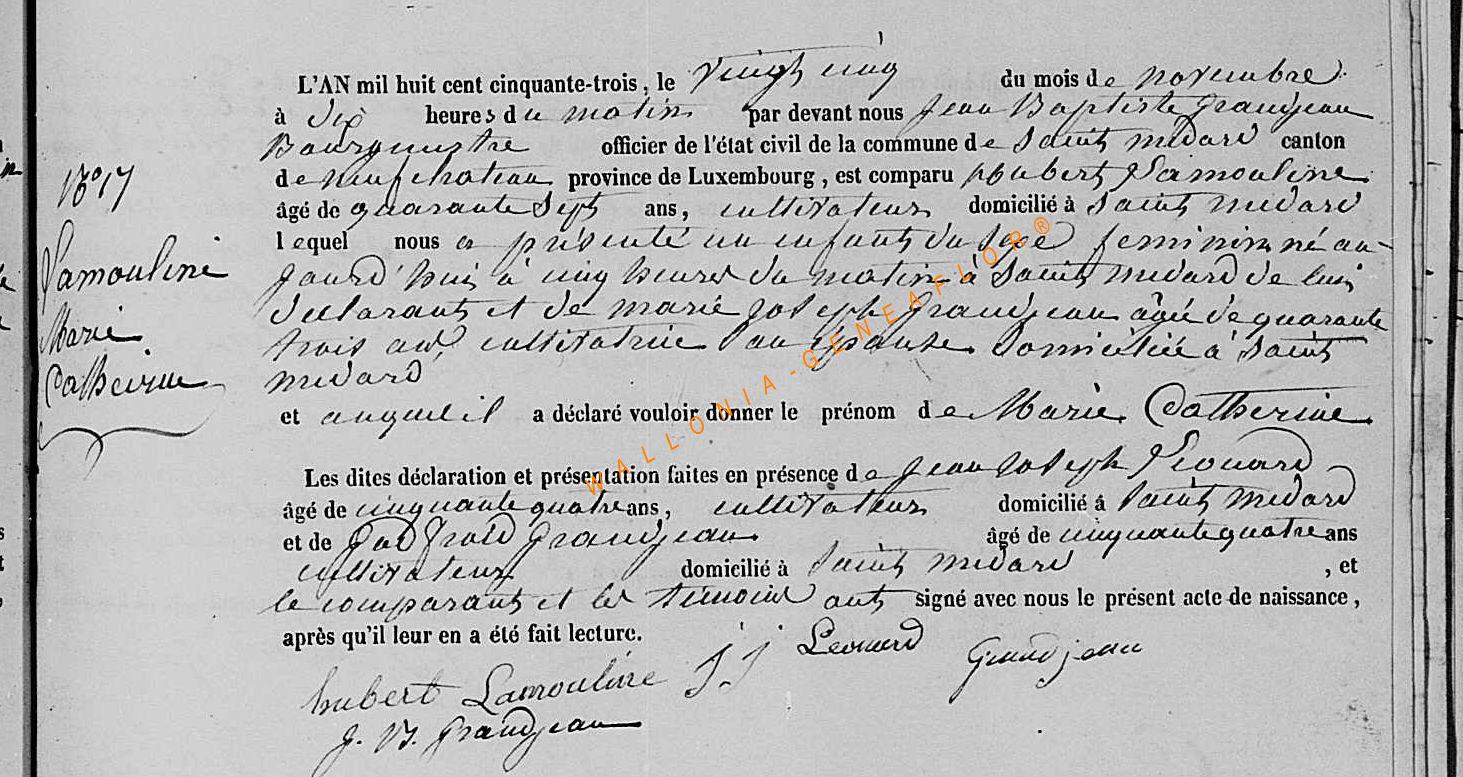 L'AN mil huit cent cinquante-trois, le vingt cinq du mois de novembre
à dix heures du matin par devant nous Jean Baptiste Grandjean
Bourgmestre officier de l'état civil de la commune de Saint médard canton
de neufchateau province de Luxembourg, est comparu hubert Lamouline
âgé de quarante sept ans, cultivateur domicilié à Saint médard
lequel nous a présenté un enfant du sexe feminin né au-
jourd'hui à cinq heures du matin à Saint médard de lui
déclarant et de marie joseph grandjean âgée de quarante
trois ans cultivatrice son épouse domiciliée à Saint
médard
et auquel il a déclaré vouloir donner le prénom de Marie Catherine
Les dites déclaration et présentation faites en présence de jean joseph Léonard
âgé de cinquante quatre ans, cultivateur domicilié à Saint médard
et de grandjean âgé de cinquante quatre ans
cultivateur domicilié à Saint médard, et
le comparant et les témoins ont signé avec nous le présent acte de naissance,
après qu'il leur en a été fait lecture.
hubert Lamouline J J Leonard Grandjean
J. B. Grandjean
N° 17
Lamouline
Marie
Catherine
WALLONIA-GENEAFLOR®